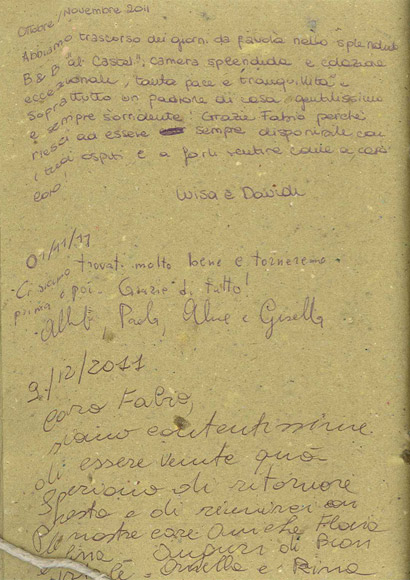 Ottobre/Novembre 2011
Abbiamo trascorso dei giorni da favola nello splendido
B & B "al Castel", camera splendida e colazione
eccezionale, tanta pace e tranquillità e
soprattutto un padrone di casa gentilissimo
e sempre sorridente! Grazie Fabio perchè
riesci ad essere sempre disponibile con
i tuoi ospiti e a farli sentire come a casa
loro!
Luisa e Davide
01/11/11
Ci siamo trovati molto bene e torneremo
prima o poi. Grazie di tutto!
Paola, e Gisella
3/12/2011
Caro Fabio,
siamo contentissime
di essere venute quà
Speriamo di ritornare
presto e di riunirci con
le nostre care Amiche Flavia
Lina - Auguri di Buon
Natale - Ornella e Pina